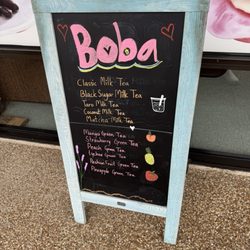 Boba
Classic Milk Tea
Black Sugar Milk Tea
Taro Milk Tea
Coconut Milk Tea
Matcha Milk Tea
Mango Green Tea
Strawberry Green Tea
Peach Green Tea
Lychee Green Tea
Passion Fruit Green Tea
Pineapple Green Tea